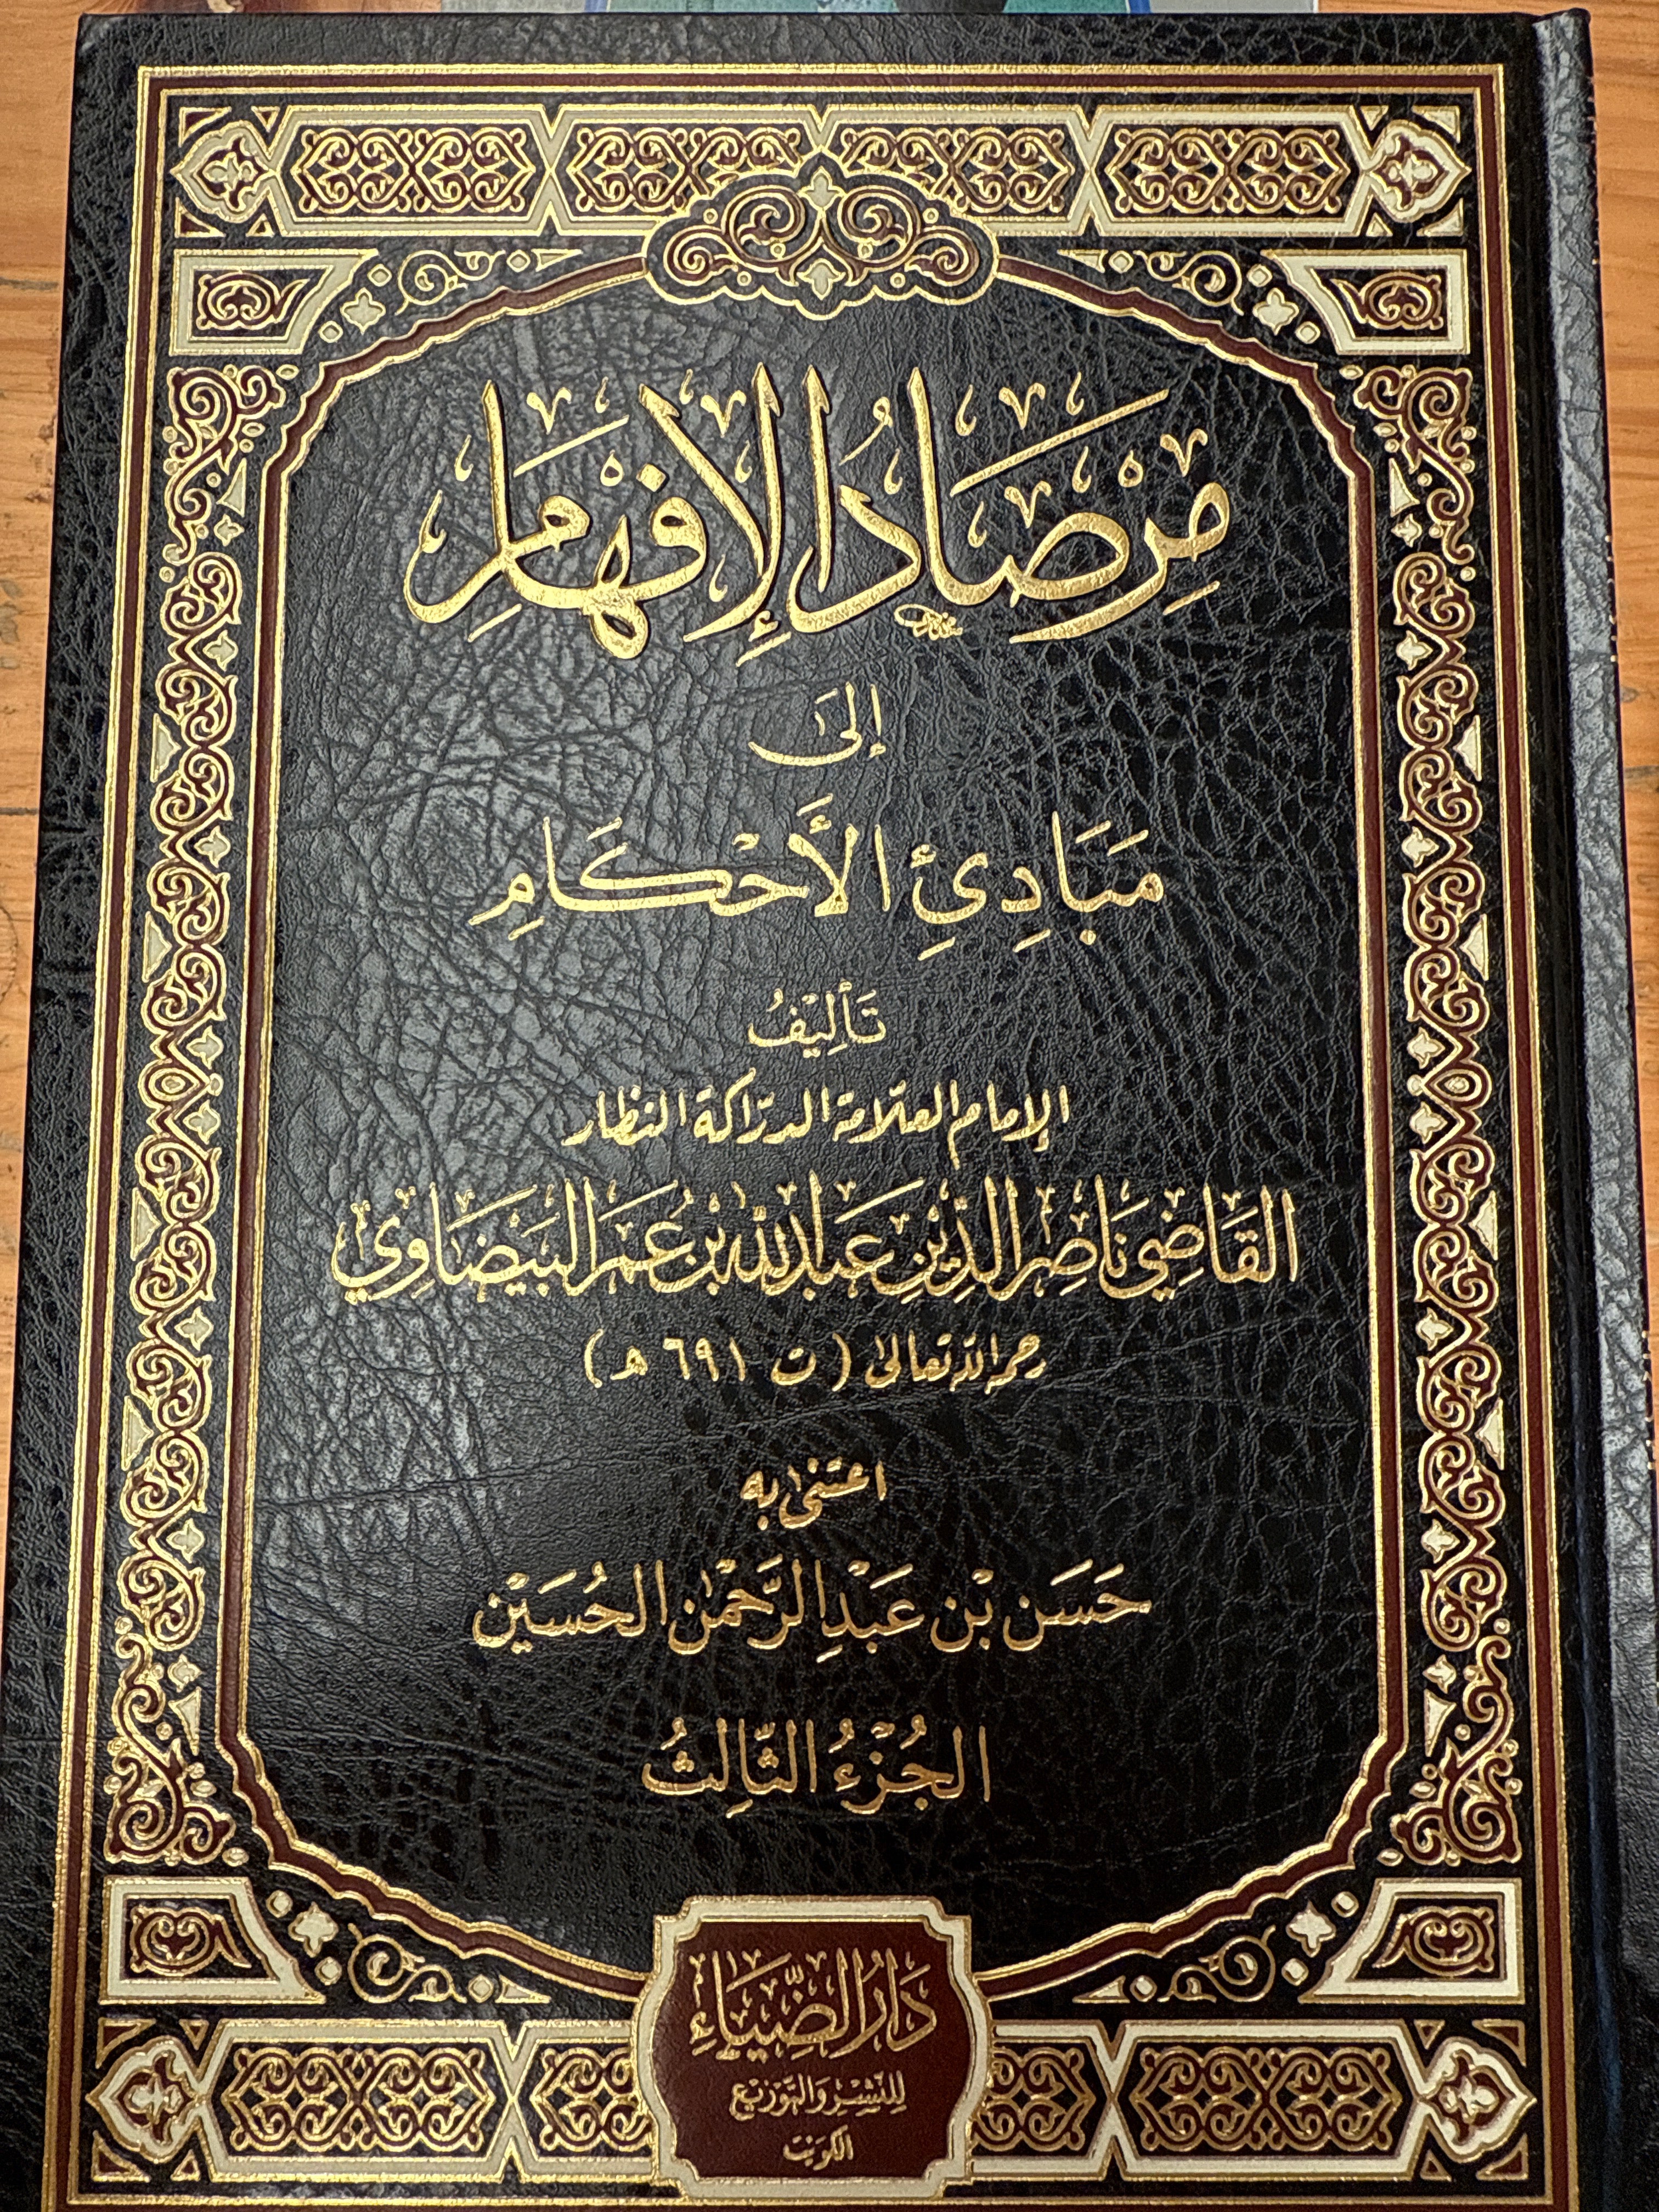 مِرْصَادُ الإِفْهَامِ
إِلَىٰ
مَبَادِئِ الأَحْكَامِ
تَأْلِيْفُ
الإمام العلّامة الدرّاكة النظار
القَاضِي نَاصِرِ الدِّيْنِ عَبْدِ اللهِ بْنِ عُمَرَ البَيْضَاوِي
رحمه الله تعالى (ت ٦٩١ هـ)
اعتنى به
حَسَن بْن عَبْدِ الرَّحْمٰن الحُسَيْن
الجُزْءُ الثَّالِثُ
دَارُ الضِّيَاءِ
لِلنَّشْرِ وَالتَّوْزِيْع
الكويت